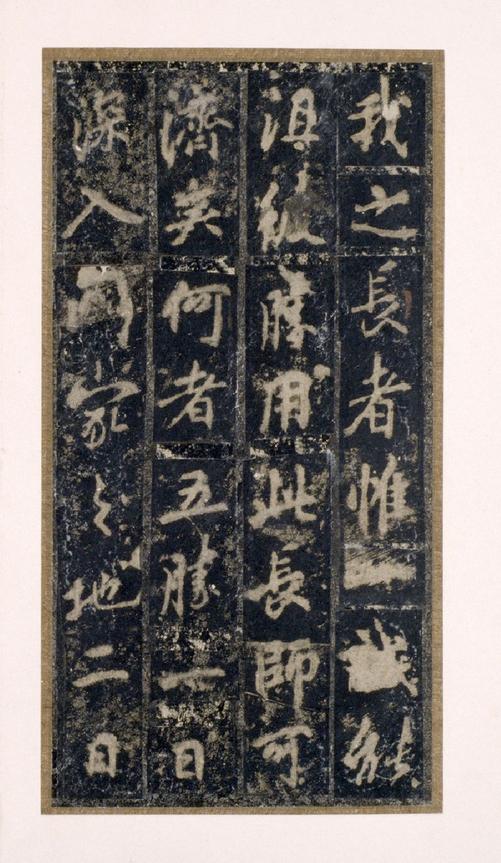 我之長者惟能
沮勝用此長師可
濟矣何者五勝一曰
深入家之地二曰